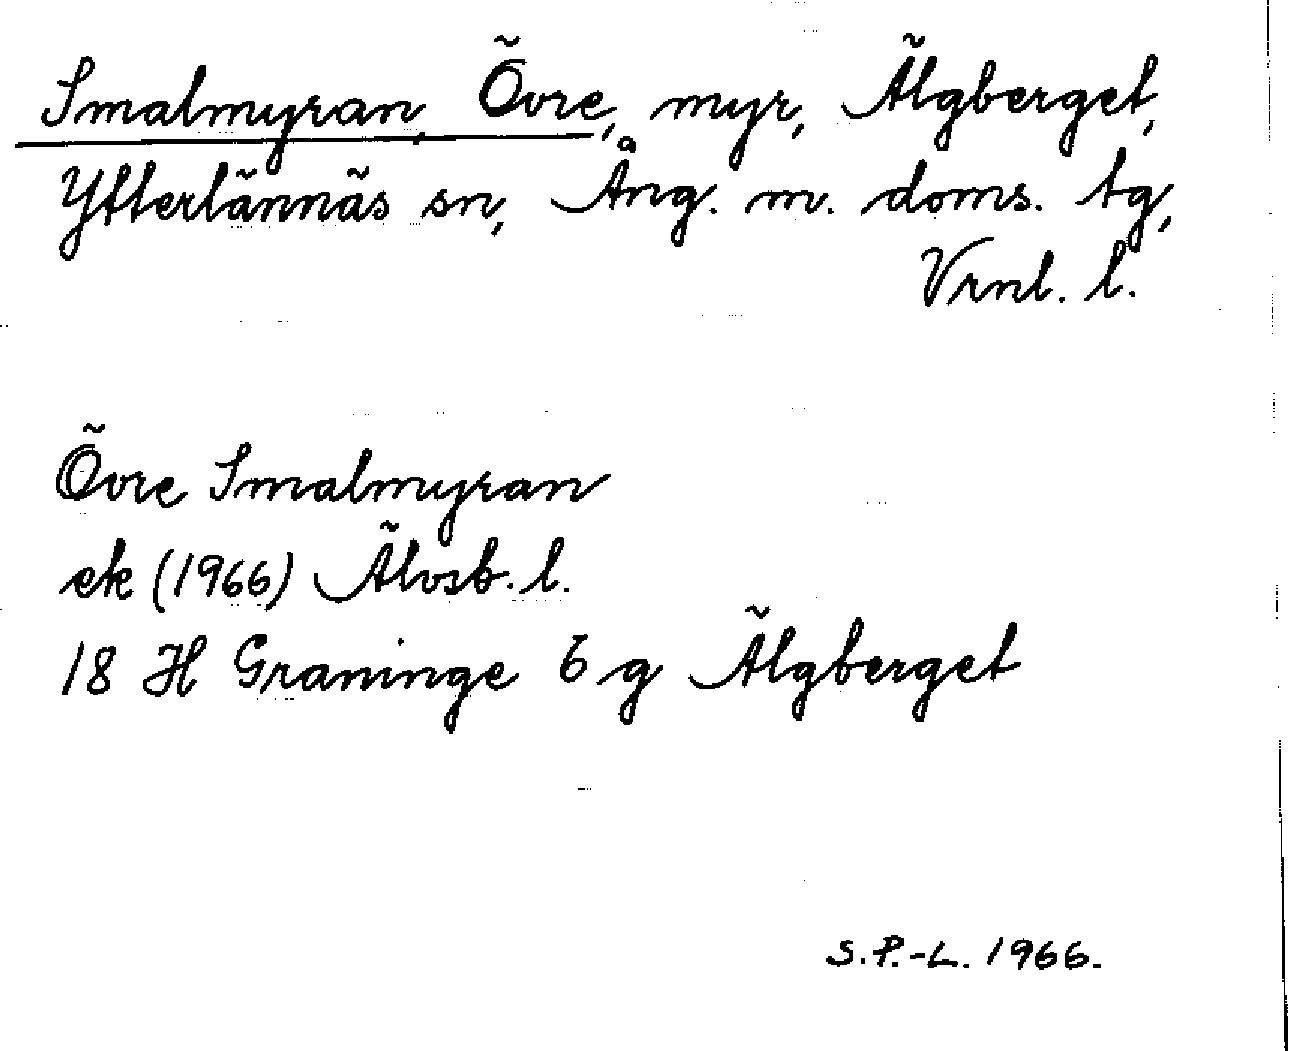 Smalmyran, Övre, myr, Älgberget,
Ytterlännäs sn, Ång. m. doms. tg,
Vrnl. l.
Övre Smalmyran
ek (1966) Älvsb. l.
18 H Graninge 6 g Älgberget
S.P.-L. 1966.